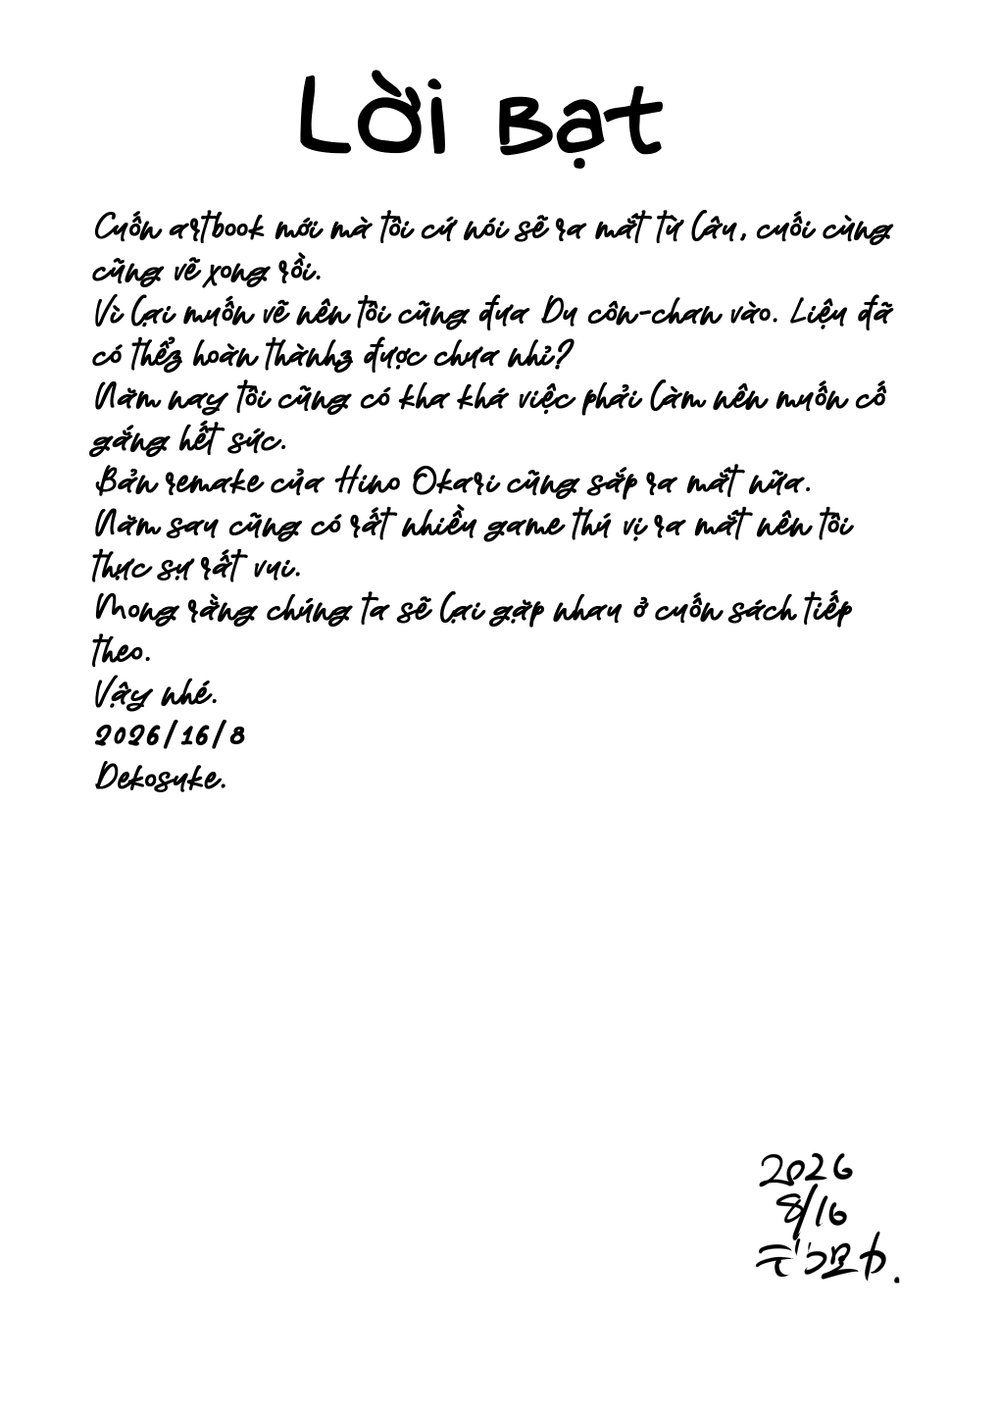 Lời Bạt
Cuốn artbook mới mà tôi cứ nói sẽ ra mắt từ lâu, cuối cùng
cũng vẽ xong rồi.
Vì lại muốn vẽ nên tôi cũng đưa Du côn-chan vào. Liệu đã
có thểz hoàn thànhz được chưa nhỉ?
Năm nay tôi cũng có kha khá việc phải làm nên muốn cố
gắng hết sức.
Bản remake của Hino Okari cũng sắp ra mắt nữa.
Năm sau cũng có rất nhiều game thú vị ra mắt nên tôi
thực sự rất vui.
Mong rằng chúng ta sẽ lại gặp nhau ở cuốn sách tiếp
theo.
Vậy nhé.
2026/16/8
Dekosuke.
2026
8/16